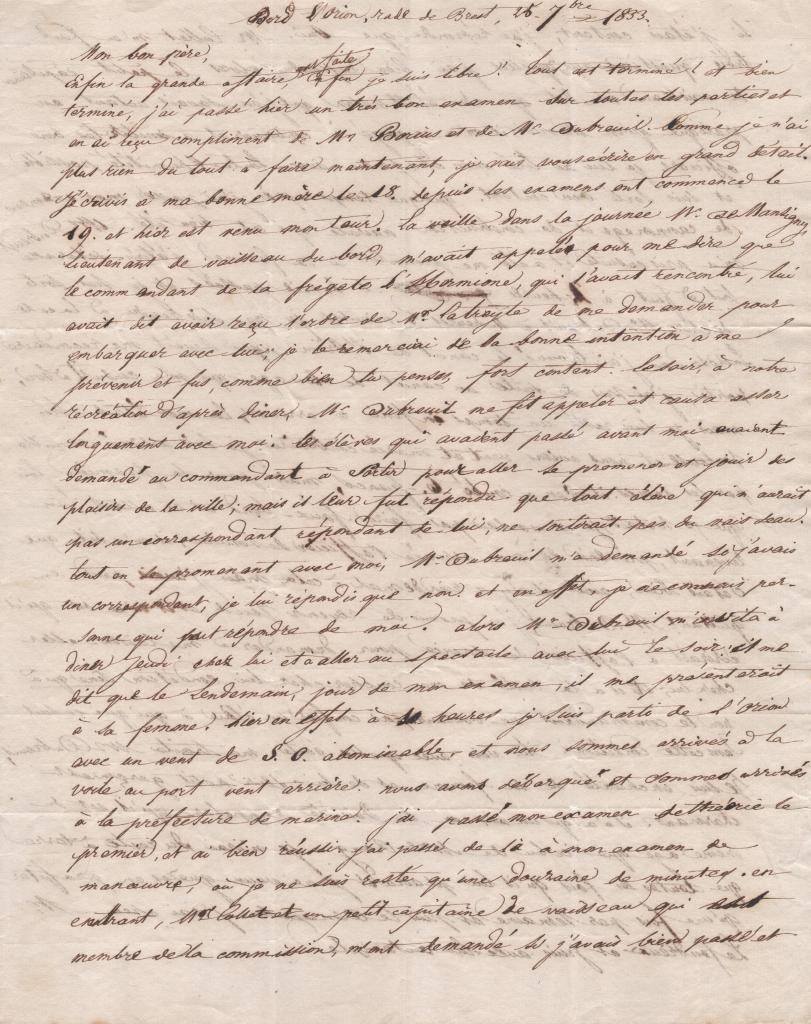 Bord L'orion, rade de Brest, 25. 7bre 1833.
Mon bon père,
Enfin la grande affaire est faite, enfin je suis libre! tout est terminé! et bien
terminé, j'ai passé hier un très bon examen sur toutes les parties et
en ai reçu compliment de Mr Borius et de Mr Dubreuil. Comme je n'ai
plus rien du tout à faire maintenant, je vais vous écrire en grand détail.
J'écrivis à ma bonne mère le 18. depuis les examens ont commencé le
19. et hier est venu mon tour. la veille dans la journée Mr. de
lieutenant de vaisseau du bord, m'avait appelé pour me dire que
le commandant de la frégate l'Hermione, qui l'avait rencontré, lui
avait dit avoir reçu l'ordre de Mr. de me demander pour
embarquer avec lui; je le remerciai de sa bonne intention à me
prévenir et fus, comme bien tu penses, fort content. le soir, à notre
récréation d'après diner, Mr Dubreuil me fit appeler et causa assez
longuement avec moi. les élèves qui avaient passé avant moi avaient
demandé au commandant à sortir pour aller se promener et jouir des
plaisirs de la ville; mais il leur fut répondu que tout élève qui n'aurait
pas un correspondant répondant de lui, ne sortirait pas du vaisseau.
tout en se promenant avec moi, Mr Dubreuil m'a demandé si j'avais
un correspondant, je lui répondis que non. et en effet, je ne connais per-
sonne qui put répondre de moi. alors Mr Dubreuil m'invita à
diner jeudi chez lui et à aller au spectacle avec lui le soir. il me
dit que le lendemain, jour de mon examen, il me présenterait
à sa femme. hier en effet à heures je suis parti de l'Orion
avec un vent de S. O. abominable, et nous sommes arrivés à la
voile au port vent arrière. nous avons débarqué et sommes arrivés
à la préfecture de marine. j'ai passé mon examen de théorie le
premier, et ai bien réussi, j'ai passé de là à mon examen de
manoeuvre, où je ne suis resté qu'une douzaine de minutes. en
entrant, Mr et un petit capitaine de vaisseau qui est
membre de la commission, m'ont demandé si j'avais bien passé et